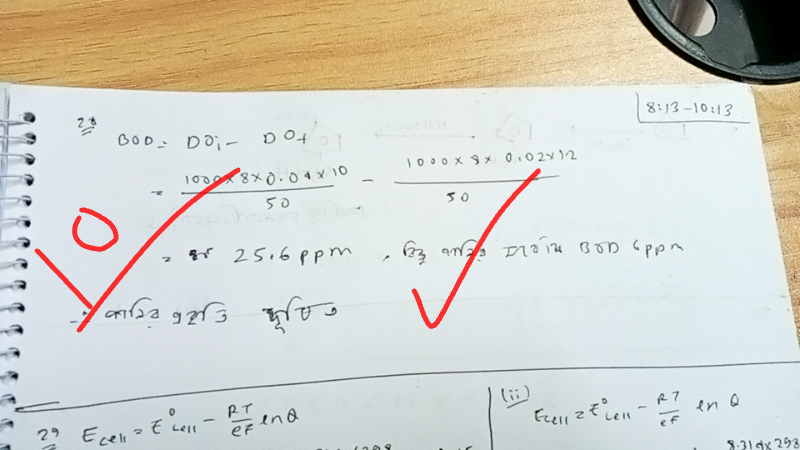 8:13-10:13
28
BOD = DOi - DOf
= 1000 x 8 x 0.04 x 10 / 50 - 1000 x 8 x 0.02 x 12 / 50
= 25.6 ppm , কিন্তু পানির BOD 6 ppm
10
∴ পানির দূষিত
29 Ecell = E°cell - RT/eF ln Q
(ii) Ecell = E°cell - RT/eF ln Q
8.314 x 298